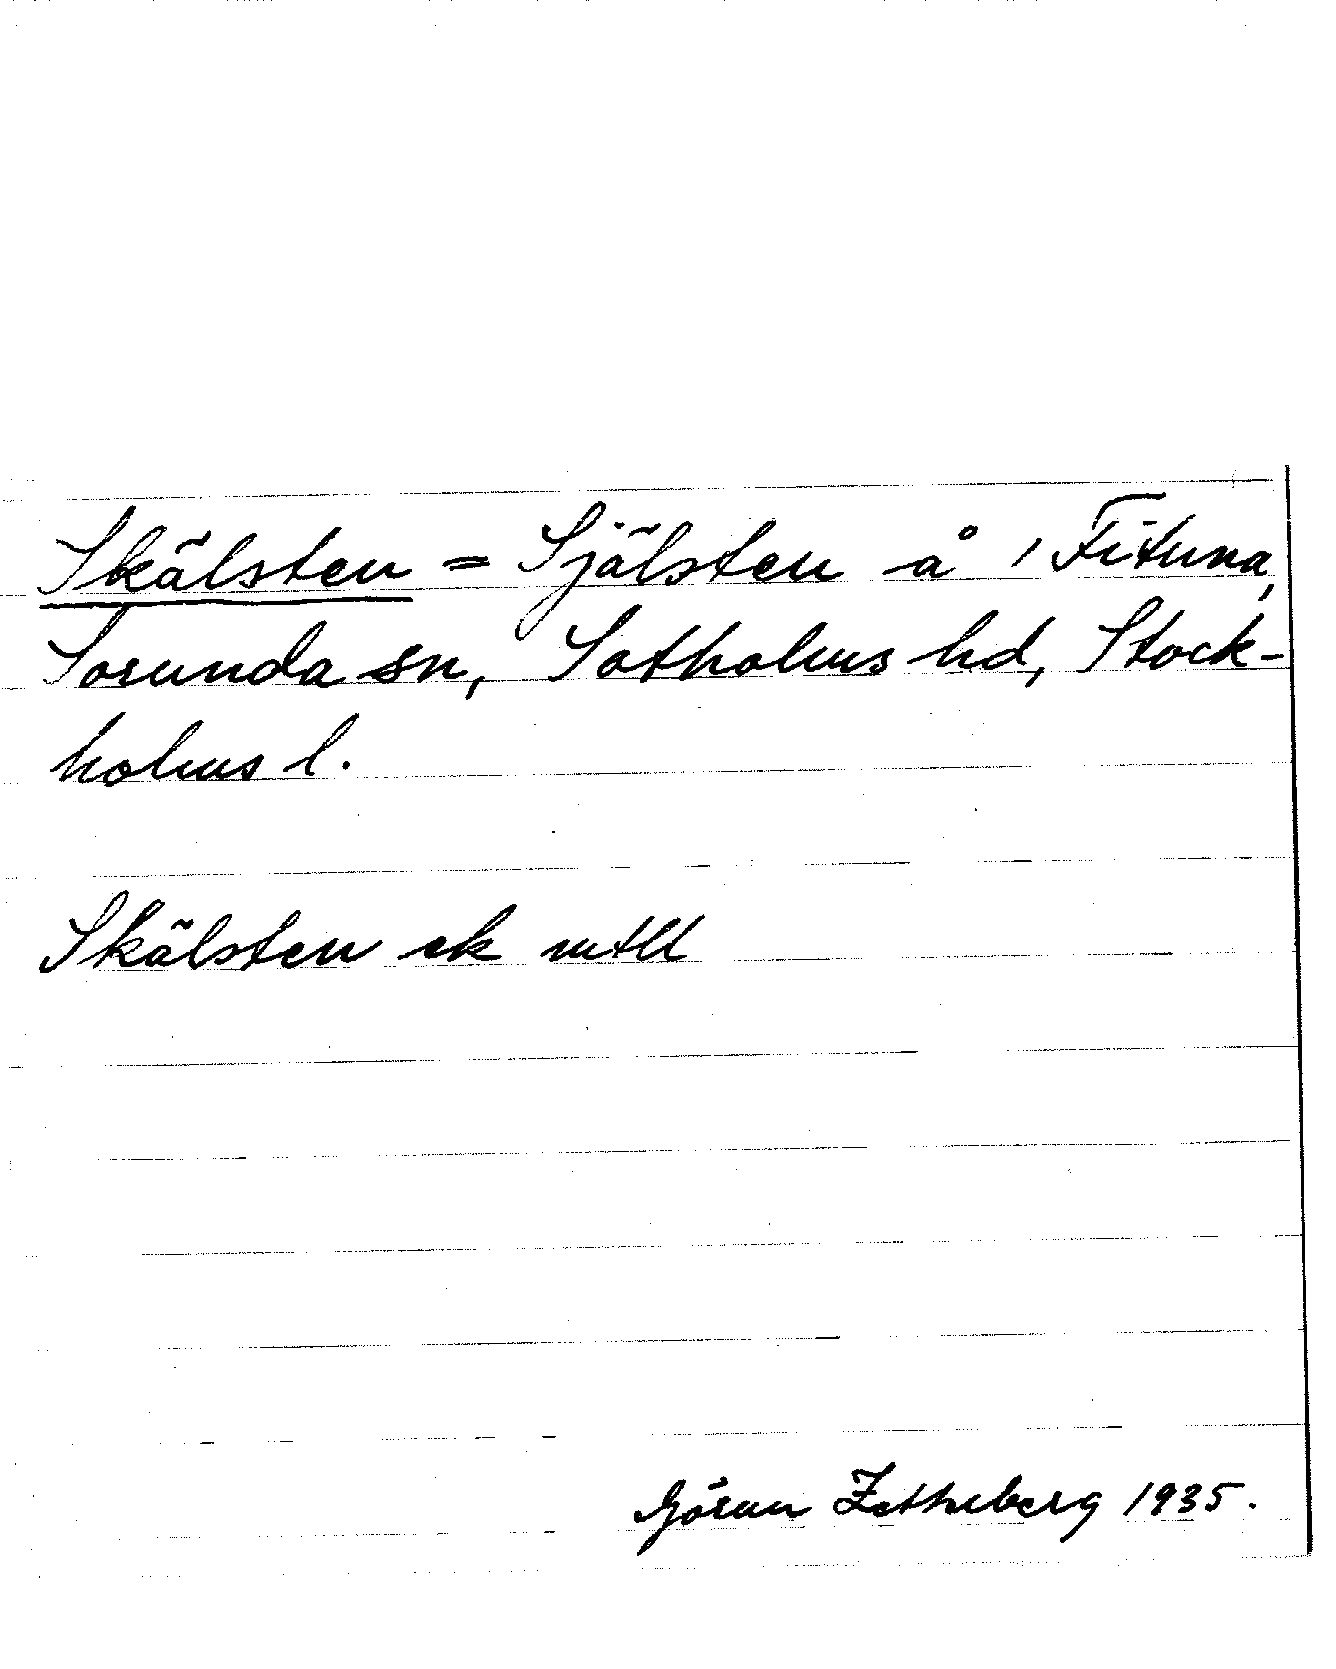 Skälsten = Själsten å, Fituna,
Sorunda sn, Sotholms hd, Stock-
holms l.
Skälsten ek mtll
Göran Zetheberg 1935.